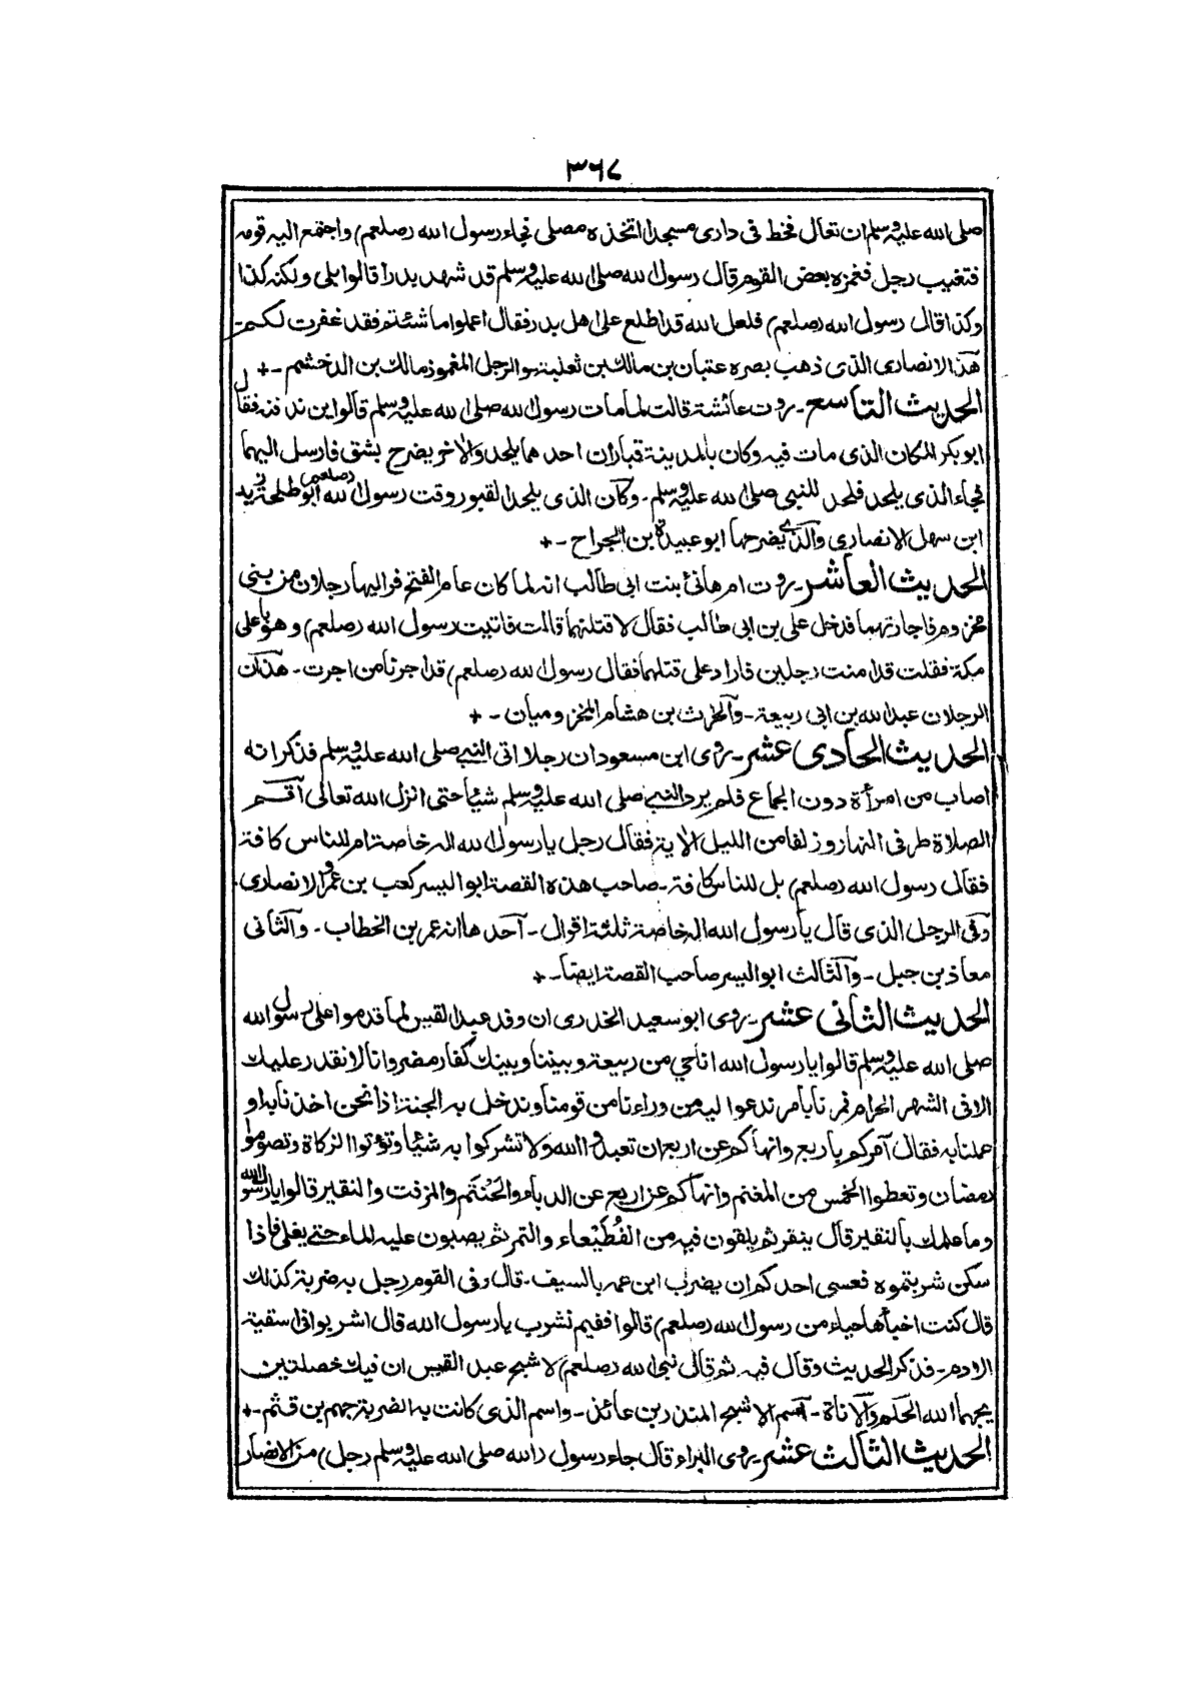 ٣٦٨
صلى الله عليه وسلم ان تعال فخط فى دارى مسجدا اتخذه مصلى فجاء رسول الله (صلعم) واجتمع اليه قومه
فتغيب رجل فغمزه بعض القوم قال رسول الله صلى الله عليه وسلم قد شهد بدرا قالوا بلى ولكنه كذا
وكذا قال رسول الله (صلعم) فلعل الله قد اطلع على اهل بدر فقال اعملوا ما شئتم فقد غفرت لكم -
هذا الانصارى الذى ذهب بصره عتبان بن مالك بن ثعلبة والرجل المغموز مالك بن الدخشم -+
الحديث التاسع - روت عائشة قالت لما مات رسول الله صلى الله عليه وسلم قالوا اين ندفنه فقال
ابو بكر المكان الذى مات فيه وكان بالمدينة قباران احدهما يلحد والاخر يضرح بشق فارسل اليهما
فجاء الذى يلحد فلحد للنبى صلى الله عليه وسلم - وكان الذى يلحد القبور وقت رسول الله (صلعم) ابو طلحة زيد
ابن سهل الانصارى والذى يضرحها ابو عبيدة بن الجراح -+
الحديث العاشر - روت ام هانئ بنت ابى طالب انه لما كان عام الفتح فر اليها رجلان من بنى
مخزوم فاجارتهما فدخل على بن ابى طالب فقال لاقتلنهما قالت فاتيت رسول الله (صلعم) وهو باعلى
مكة فقلت قد امنت رجلين فاراد على قتلهما فقال رسول الله (صلعم) قد اجرنا من اجرت - هذان
الرجلان عبد الله بن ابى ربيعة - والحرث بن هشام المخزوميان -+
الحديث الحادى عشر - روى ابن مسعود ان رجلا اتى النبى صلى الله عليه وسلم فذكر انه
اصاب من امرأة دون الجماع فلم يرد النبى صلى الله عليه وسلم شيئا حتى انزل الله تعالى أقم
الصلاة طرفى النهار وزلفا من الليل الاية فقال رجل يا رسول الله اله خاصة ام للناس كافة
فقال رسول الله (صلعم) بل للناس كافة - صاحب هذه القصة ابو اليسر كعب بن عمرو الانصارى
وفى الرجل الذى قال يا رسول الله اله خاصة ثلثة اقوال - احدها انه عمر بن الخطاب - والثانى
معاذ بن جبل - والثالث ابو اليسر صاحب القصة ايضا -+
الحديث الثانى عشر - روى ابو سعيد الخدرى ان وفد عبد القيس لما قدموا على رسول الله
صلى الله عليه وسلم قالوا يا رسول الله انا حي من ربيعة وبيننا وبينك كفار مضر وانا لا نقدر عليك
الا فى الشهر الحرام فمرنا بامر ندعوا اليه من وراءنا من قومنا وندخل به الجنة اذا نحن اخذنا به او
عملنا به فقال آمركم باربع وانهاكم عن اربع ان تعبدوا الله ولا تشركوا به شيئا وتؤتوا الزكاة وتصوموا
رمضان وتعطوا الخمس من المغنم وانهاكم عن اربع عن الدباء والحنتم والمزفت والنقير قالوا يا رسول الله
وما علمك بالنقير قال ينقر ثم يلقون فيه من القطيعاء والتمر ثم يصبون عليه الماء حتى يغلى فاذا
سكن شربتموه فعسى احدكم ان يضرب ابن عمه بالسيف - قال وفى القوم رجل به ضربة كذلك
قال كنت اخبأها حياء من رسول الله (صلعم) قالوا ففيم نشرب يا رسول الله قال اشربوا فى اسقية
الادم - فذكر الحديث وقال فيه ثم قال نبى الله (صلعم) لاشج عبد القيس ان فيك خصلتين
يحبهما الله الحلم والاناة - اسم الاشج المنذر بن عائذ - واسم الذى كانت به الضربة جهم بن قثم -+
الحديث الثالث عشر - روى البراء قال جاء رسول (الله صلى الله عليه وسلم رجل) من الانصار